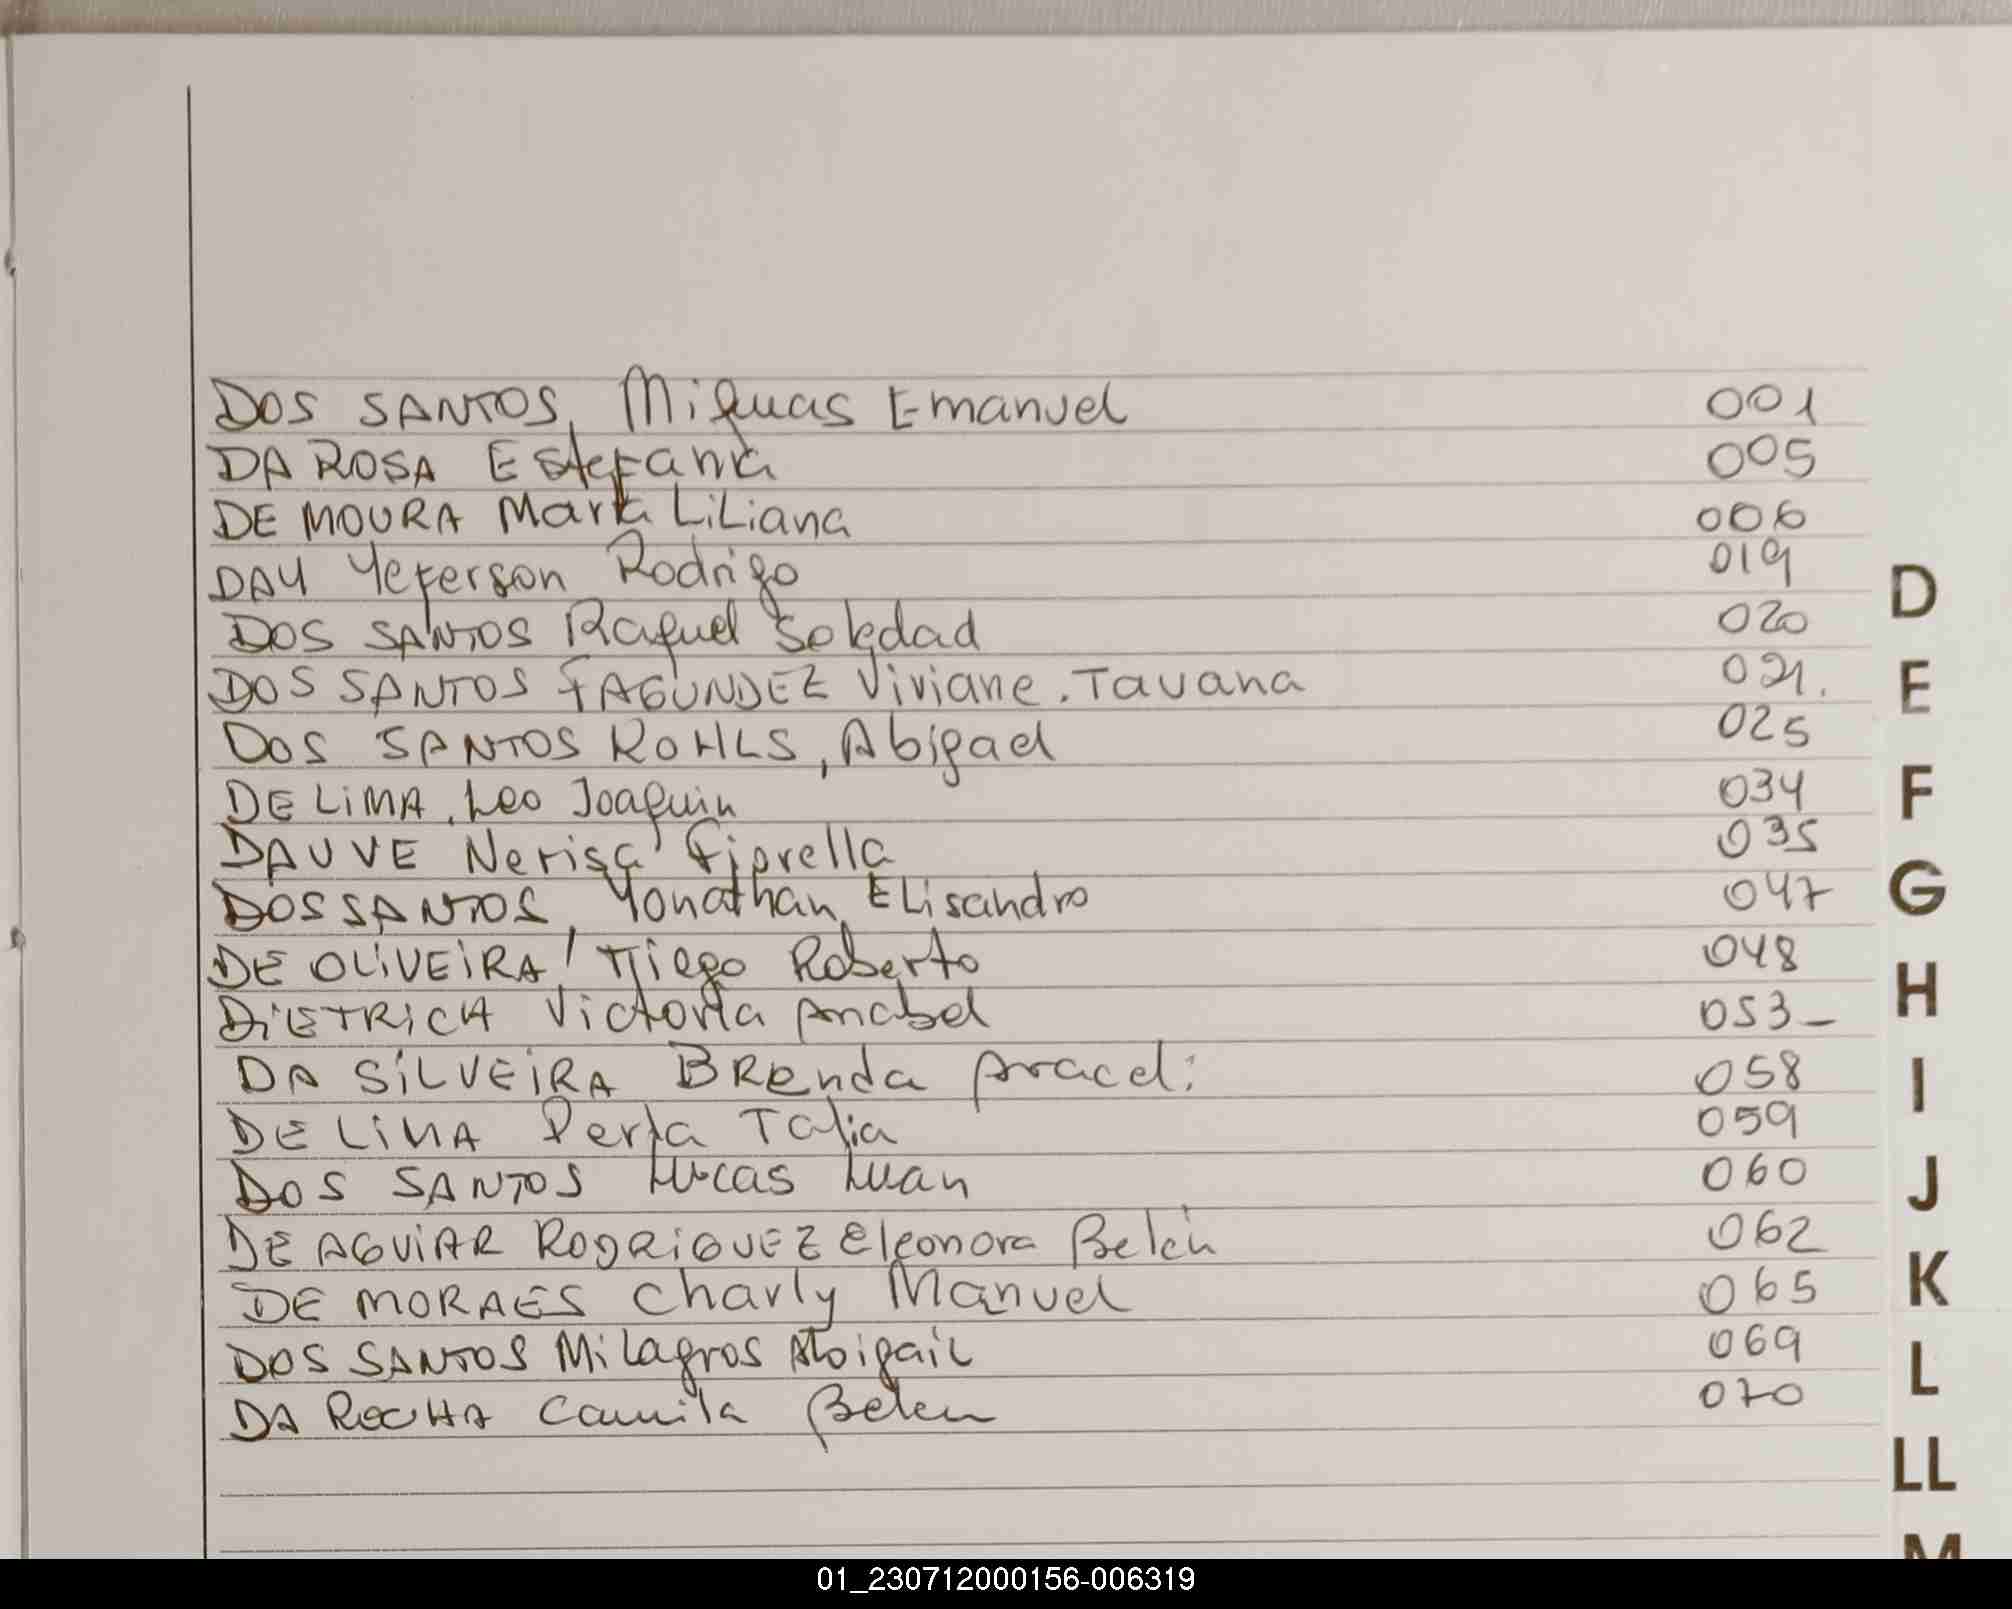 DOS SANTOS, Miqueas Emanuel 001
DA ROSA Estefania 005
DE MOURA Marta Liliana 006
DAY Yeferson Rodrigo 019
DOS SANTOS Raquel Soledad 020
DOS SANTOS FAGUNDEZ Viviane Tavana 021.
DOS SANTOS ROHLS, Abigael 025
DE LIMA, Leo Joaquin 034
DAUVE Nerisa Fiorella 035
DOS SANTOS, Yonathan Elisandro 047
DE OLIVEIRA, Tiego Roberto 048
DIETRICH Victoria Anabel 053-
DA SILVEIRA Brenda Araceli 058
DE LIMA Perla Talia 059
DOS SANTOS Lucas Luan 060
DE AGUIAR RODRIGUEZ Eleonora Belén 062
DE MORAES Charly Manuel 065
DOS SANTOS Milagros Abigail 069
DA ROCHA Camila Belen 070
D
E
F
G
H
I
J
K
L
LL
M
01_230712000156-006319